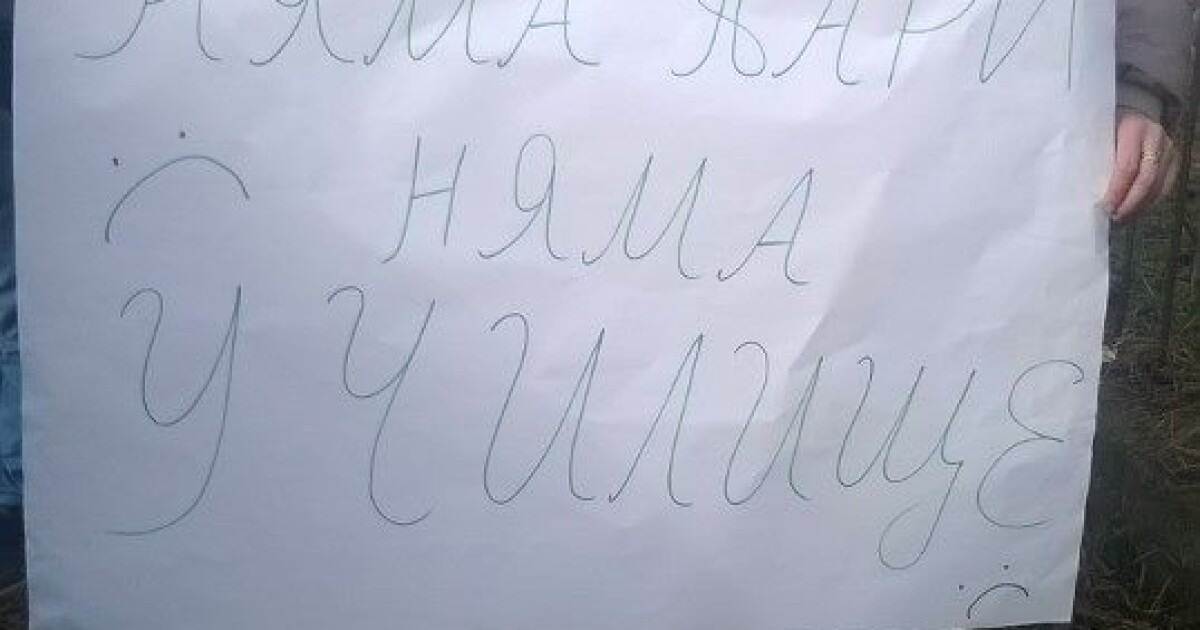 НЯМА ПАРИ
НЯМА
УЧИЛИЩЕ